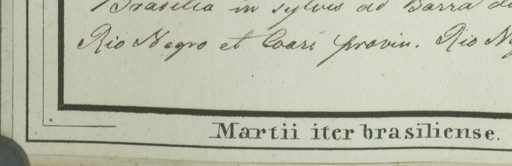 Brasilia in sylvis ad Barra do
Rio Negro et Coari provin. Rio N
Martii iter brasiliense.